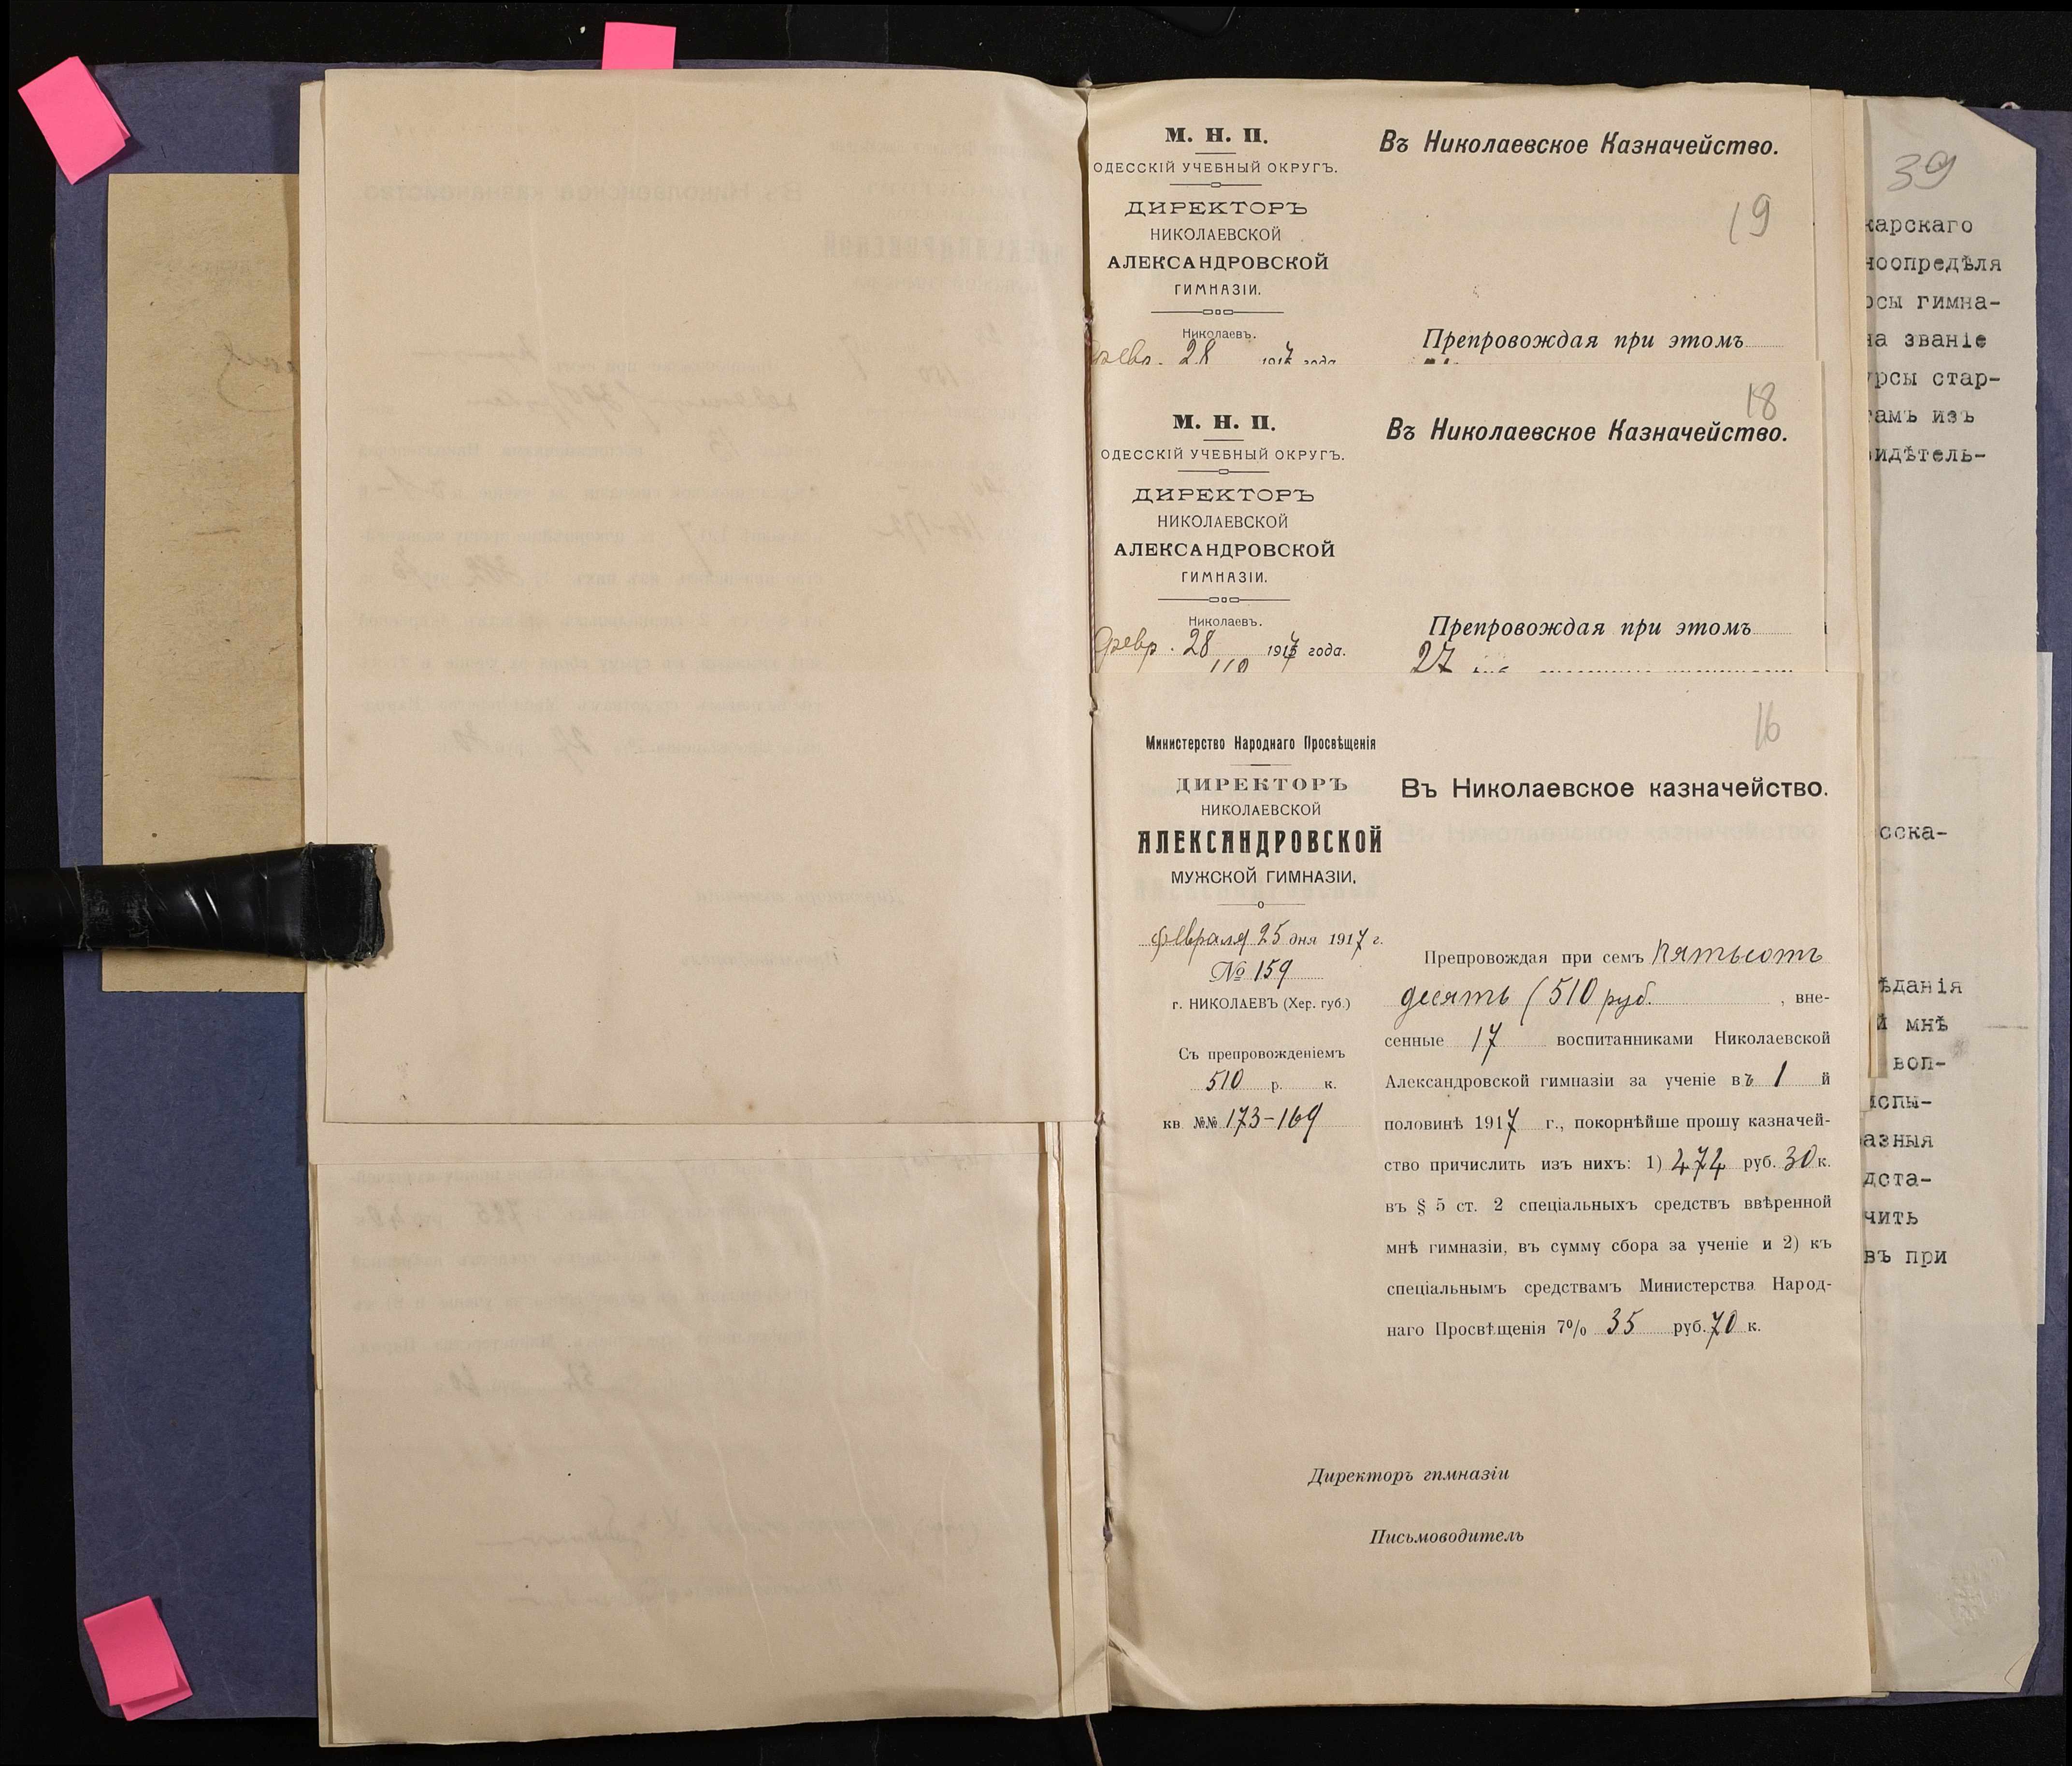 М. Н. П.
ОДЕССКІЙ УЧЕБНЫЙ ОКРУГЪ.
ДИРЕКТОРЪ
НИКОЛАЕВСКОЙ
АЛЕКСАНДРОВСКОЙ
ГИМНАЗІИ.
Николаевъ.
февр. 28 1917 года
Въ Николаевское Казначейство.
19
Препровождая при этомъ
М. Н. П.
ОДЕССКІЙ УЧЕБНЫЙ ОКРУГЪ.
ДИРЕКТОРЪ
НИКОЛАЕВСКОЙ
АЛЕКСАНДРОВСКОЙ
ГИМНАЗІИ.
Николаевъ.
февр. 28 1917 года.
18
Въ Николаевское Казначейство.
Препровождая при этомъ
27
16
Министерство Народнаго Просвѣщенія
ДИРЕКТОРЪ
НИКОЛАЕВСКОЙ
АЛЕКСАНДРОВСКОЙ
МУЖСКОЙ ГИМНАЗІИ,
февраля 25 дня 1917 г.
№ 159
г. НИКОЛАЕВЪ (Хер. губ.)
Съ препровожденіемъ
510 р. к.
кв №№ 173-169
Въ Николаевское казначейство.
Препровождая при семъ пятьсотъ
десять (510 руб. , вне-
сенные 17 воспитанниками Николаевской
Александровской гимназіи за ученіе въ 1 й
половинѣ 1917 г., покорнѣйше прошу казначей-
ство причислить изъ нихъ: 1) 474 руб. 30 к.
въ § 5 ст. 2 спеціальныхъ средствъ ввѣренной
мнѣ гимназіи, въ сумму сбора за ученіе и 2) къ
спеціальнымъ средствамъ Министерства Народ-
наго Просвѣщенія 7% 35 руб. 70 к.
Директоръ гимназіи
Письмоводитель
39
карскаго
ноопредѣля
рсы гимна-
на званіе
урсы стар-
тамъ изъ
видѣтель-
сска-
ѣданія
й мнѣ
воп-
испы-
азныя
дста-
чить
въ при